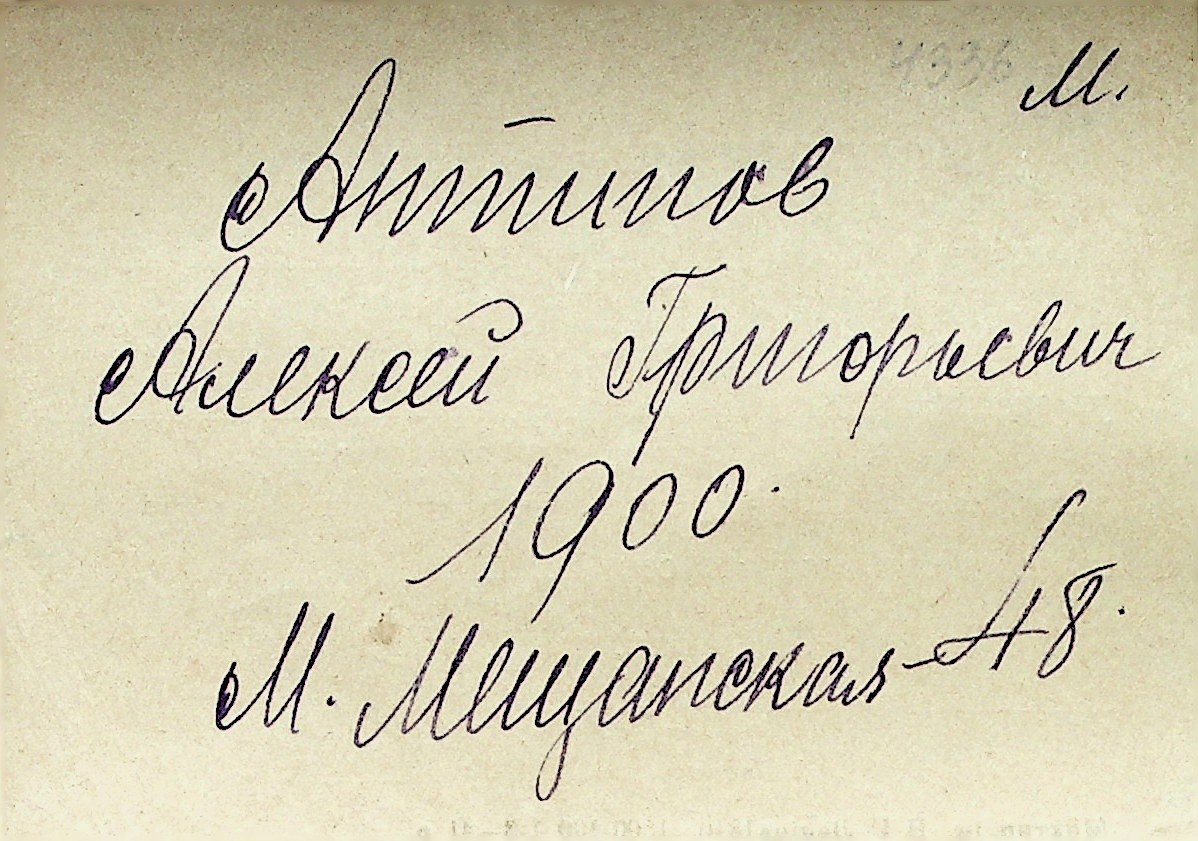 4336 М.
Антипов
Алексей Григорьевич
1900.
М. Мещанская – 48.